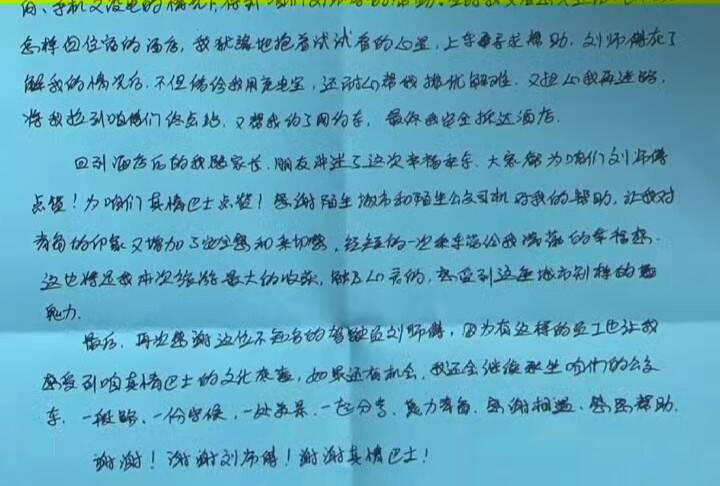 间、手机又没电的情况下,得到咱们刘师傅的帮助。
怎样回住宿的酒店,我犹豫地抱着试试看的心里,上车寻求帮助,刘师傅在了
解我的情况后,不但借给我用充电宝,还耐心帮我排忧解难,又担心我再迷路,
将我拉到咱们终点站,又帮我约了网约车,最终我安全抵达酒店。
回到酒店后的我跟家长、朋友讲述了这次幸福乘车,大家都为咱们刘师傅
点赞!为咱们真情巴士点赞!感谢陌生城市和陌生公交司机对我的帮助,让我对
青岛的印象又增加了安全感和亲切感,短短的一次乘车带给我满满的幸福感。
这也将是我本次旅游最大的收获,触及心灵的,感受到这座城市别样的
魅力。
最后,再次感谢这位不知名的驾驶员刘师傅,因为有这样的员工也让我
感受到咱真情巴士的文化底蕴,如果还有机会,我还会继续乘坐咱们的公交
车,一段路、一份守候,一处美景、一起分享,魅力青岛,感谢相遇,感恩帮助。
谢谢!谢谢刘师傅!谢谢真情巴士!